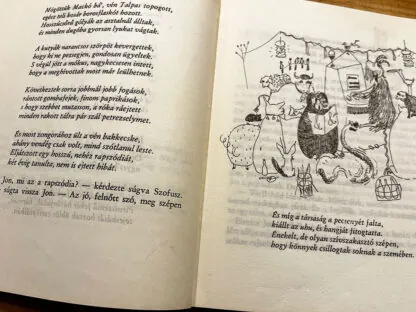 Mögöttük Mackó bá', vén Talpas topogott,
egész teli boros boroflaskót hozott.
Hosszúcsőrű gólyák az asztalnál álltak,
és minden dugóba gyorsan lyukat vágtak.
A kutyák narancsos szörpöt kevergettek,
hogy ki ne pezsegjen, gondosan ügyeltek.
S végül jött a mókus, nagykecsesen intett,
hogy a meghívottak most már leülhetnek.
Következtek sorra jobbnál jobb fogások,
rántott gombafejek, finom paprikások,
s hogy szebbet mutasson, a róka rálejtett
minden rakott tálra pár szál petrezselymet.
És most zongorához ült a vén bakkecske,
ahány vendég csak volt, mind szótlanul leste.
Eljátszott egy hosszú, nehéz rapszódiát,
két évig tanulta, nem is ejtett bibát.
Jon, mi az a rapszódia? — kérdezte súgva Szofusz.
súgta vissza Jon. — Az jó, felnőtt szó, meg szépen
És míg a társaság a pecsenyét falta,
kiállt az uhu, és hangját fitogtatta.
Énekelt, de olyan szívszakasztó szépen,
hogy könnyek csillogtak soknak a szemében.